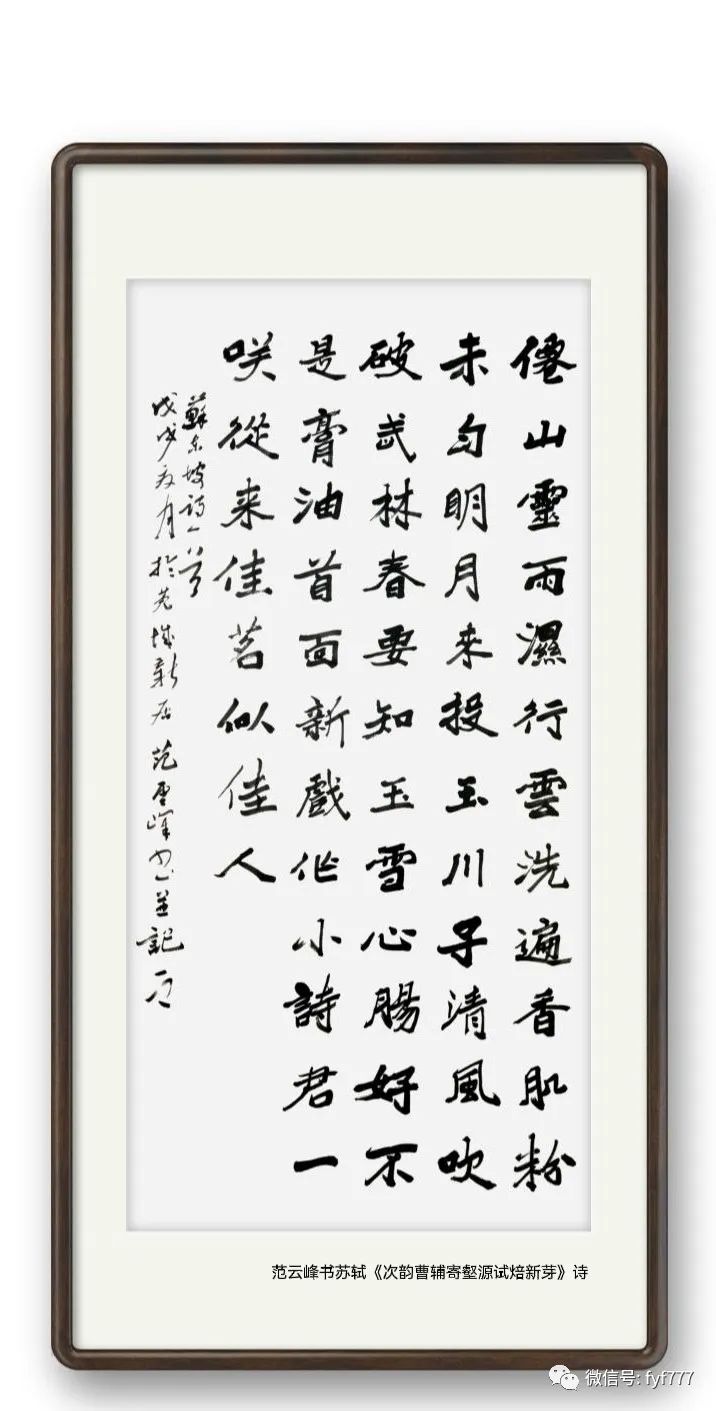 僊山靈雨濕行雲洗遍香肌粉
未匀明月来投玉川子清風吹
破武林春要知玉雪心腸好不
是膏油首面新戲作小詩君一
咲從来佳茗似佳人
蘇东坡诗一首
戊戌夏月於芜城新居范雲峰书並記
范云峰书苏轼《次韵曹辅寄壑源试焙新芽》诗
微信号: fyf777